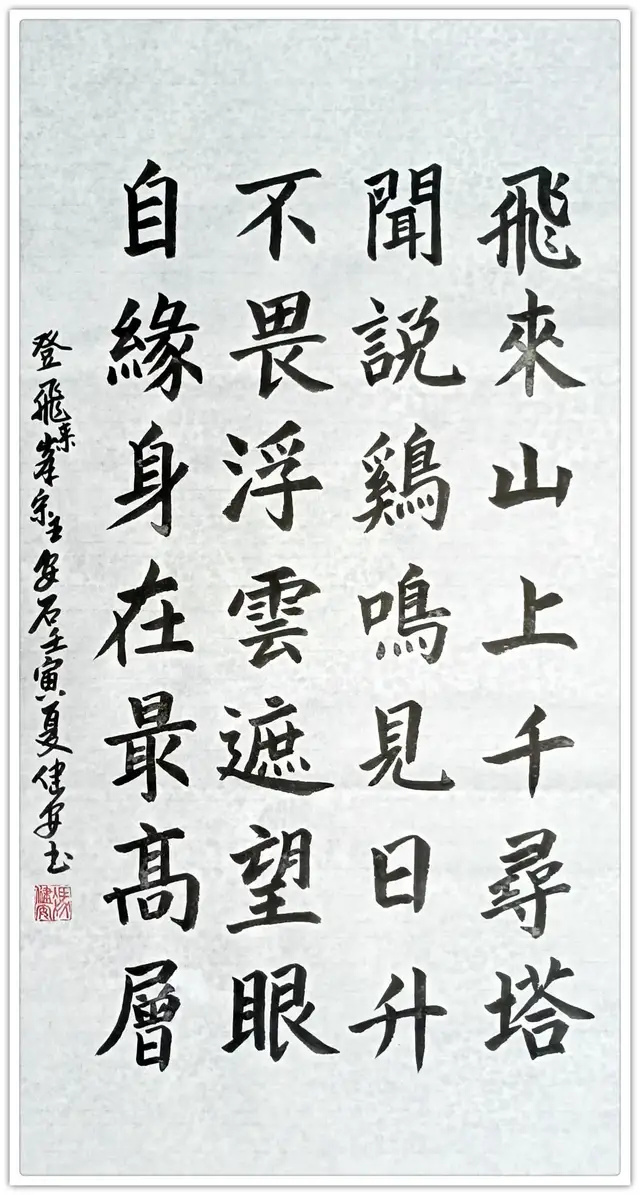 飛來山上千尋塔
聞説鷄鳴見日升
不畏浮雲遮望眼
自緣身在最高層
登飛来峯宋王安石壬寅夏健安书